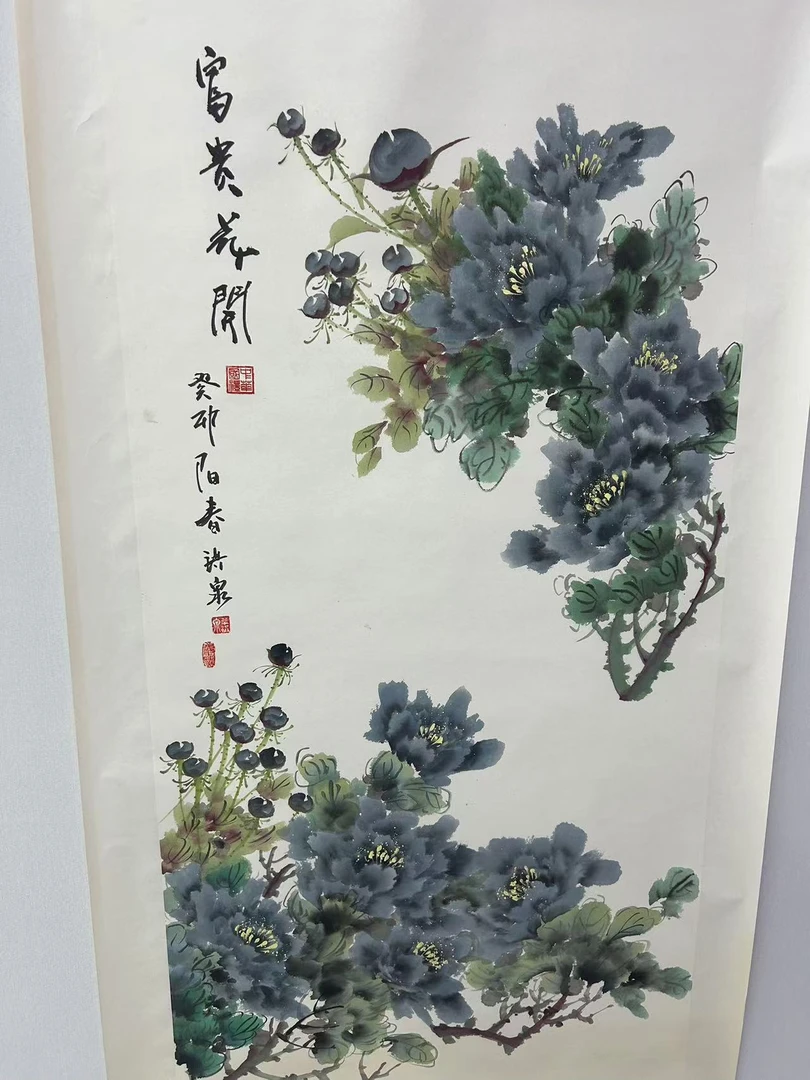 富贵花開
癸卯阳春 洪泉